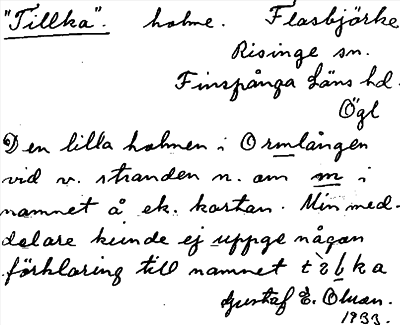 "Tillka". holme. Flasbjörke
Risinge sn.
Finspånga Läns hd.
Ögl
Den lilla holmen i Ormlången
vid v. stranden n. om m i
namnet å ek. kartan. Min med-
delare kunde ej uppge någon
förklaring till namnet
Gustaf E. Olson.
1933.